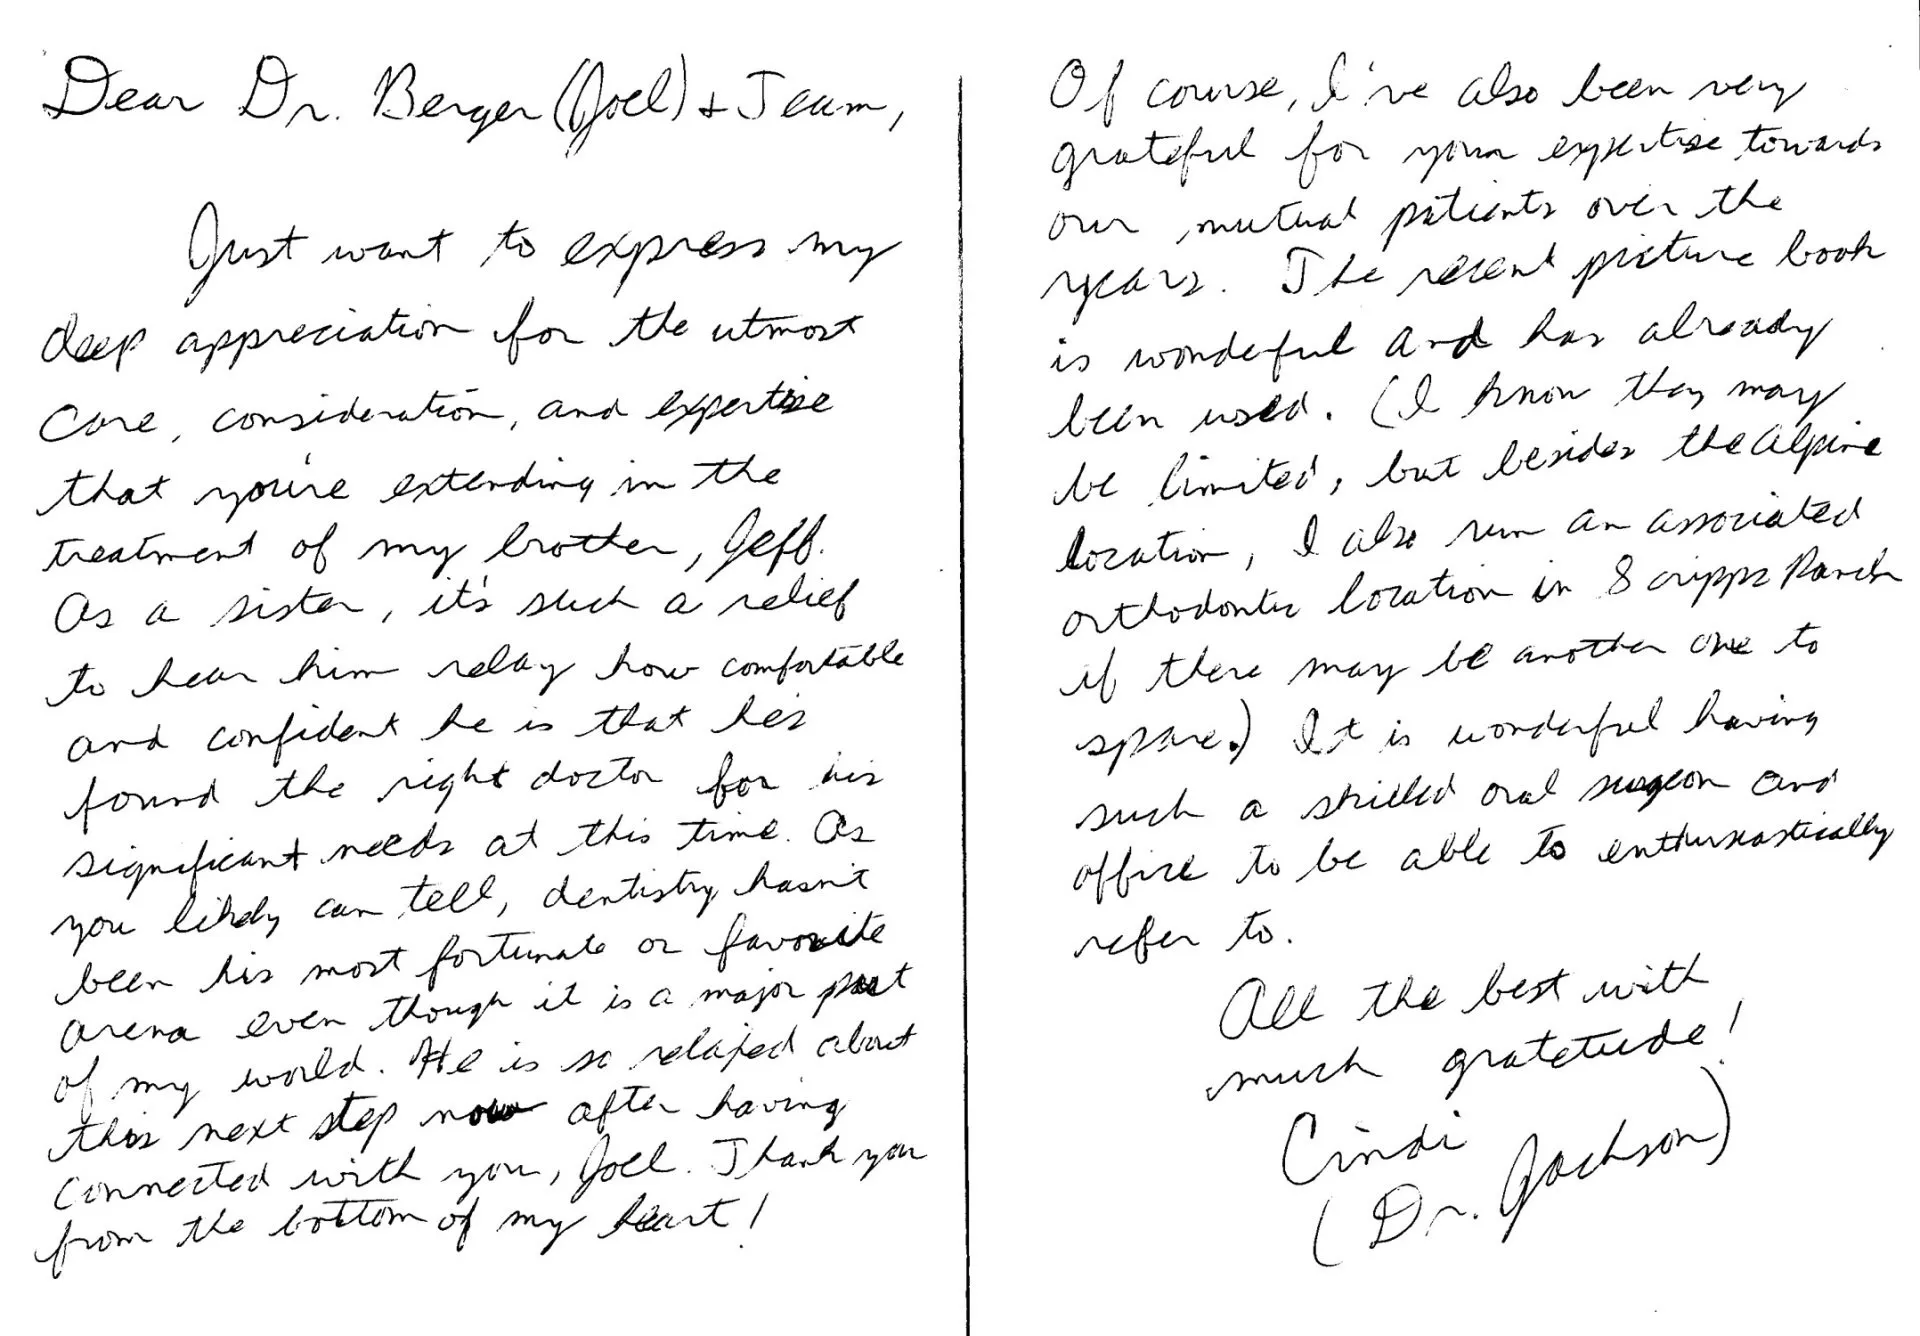 Dear Dr. Berger (Joel) + Team,
Just want to express my
deep appreciation for the utmost
care, consideration, and expertise
that you're extending in the
treatment of my brother, Jeff.
As a sister, it's such a relief
to hear him relay how comfortable
and confident he is that he's
found the right doctor for his
significant needs at this time. As
you likely can tell, dentistry hasn't
been his most fortunate or favorite
arena even though it is a major part
of my world. He is so relaxed about
this next step now after having
connected with you, Joel. Thank you
from the bottom of my heart!
Of course, I've also been very
grateful for your expertise towards
our mutual patients over the
years. The recent picture book
is wonderful and has already
been used. (I know they may
be limited, but besides the Alpine
location, I also run an associated
orthodontic location in Scripps Ranch
if there may be another one to
spare.) It is wonderful having
such a skilled oral surgeon and
office to be able to enthusiastically
refer to.
All the best with
much gratetude!
Cindi
(Dr. Jackson)